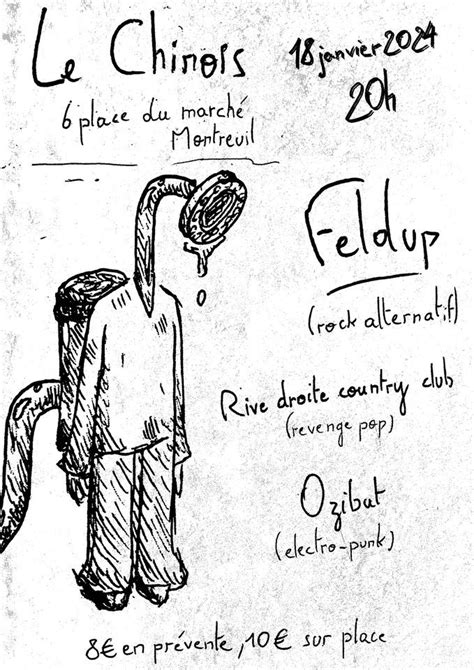 Le Chinois
18 janvier 2024
20h
6 place du marché
Montreuil
Feldup
(rock alternatif)
Rive droite country club
(revenge pop)
Ozibut
(electro-punk)
8€ en prévente, 10€ sur place